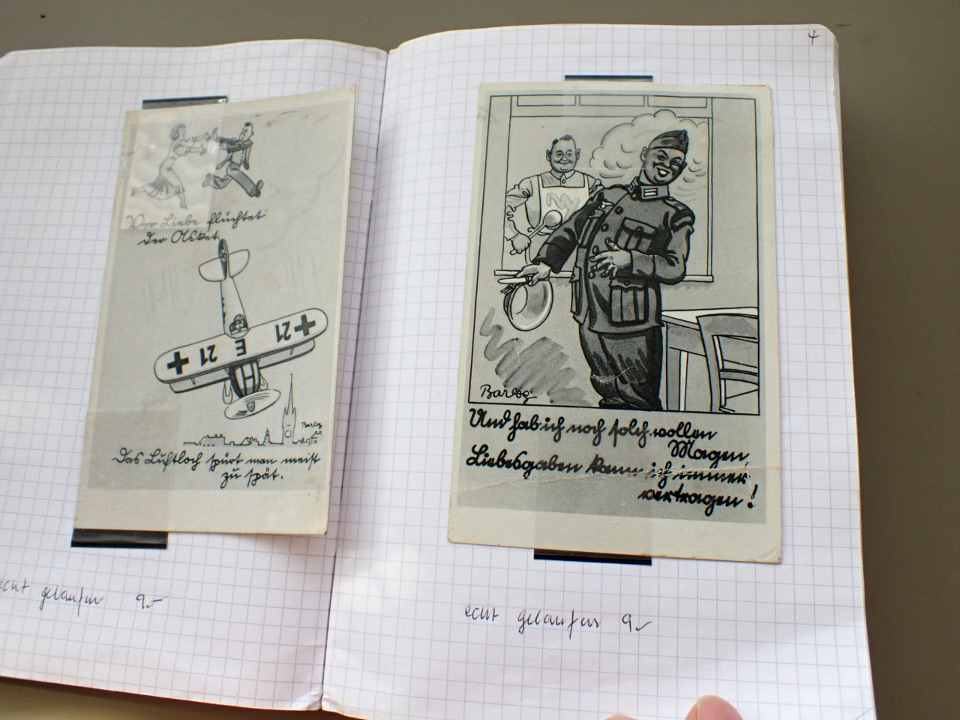 Vor Liebe flüchtet
der Asket,
21 E 21
Barlog
Das Luftloch spürt man meist
zu spät.
echt gelaufen 9,-
4
Barlog
Und hab ich noch solch vollen
Magen,
Liebesgaben kann ich immer
vertragen!
echt gelaufen 9,-